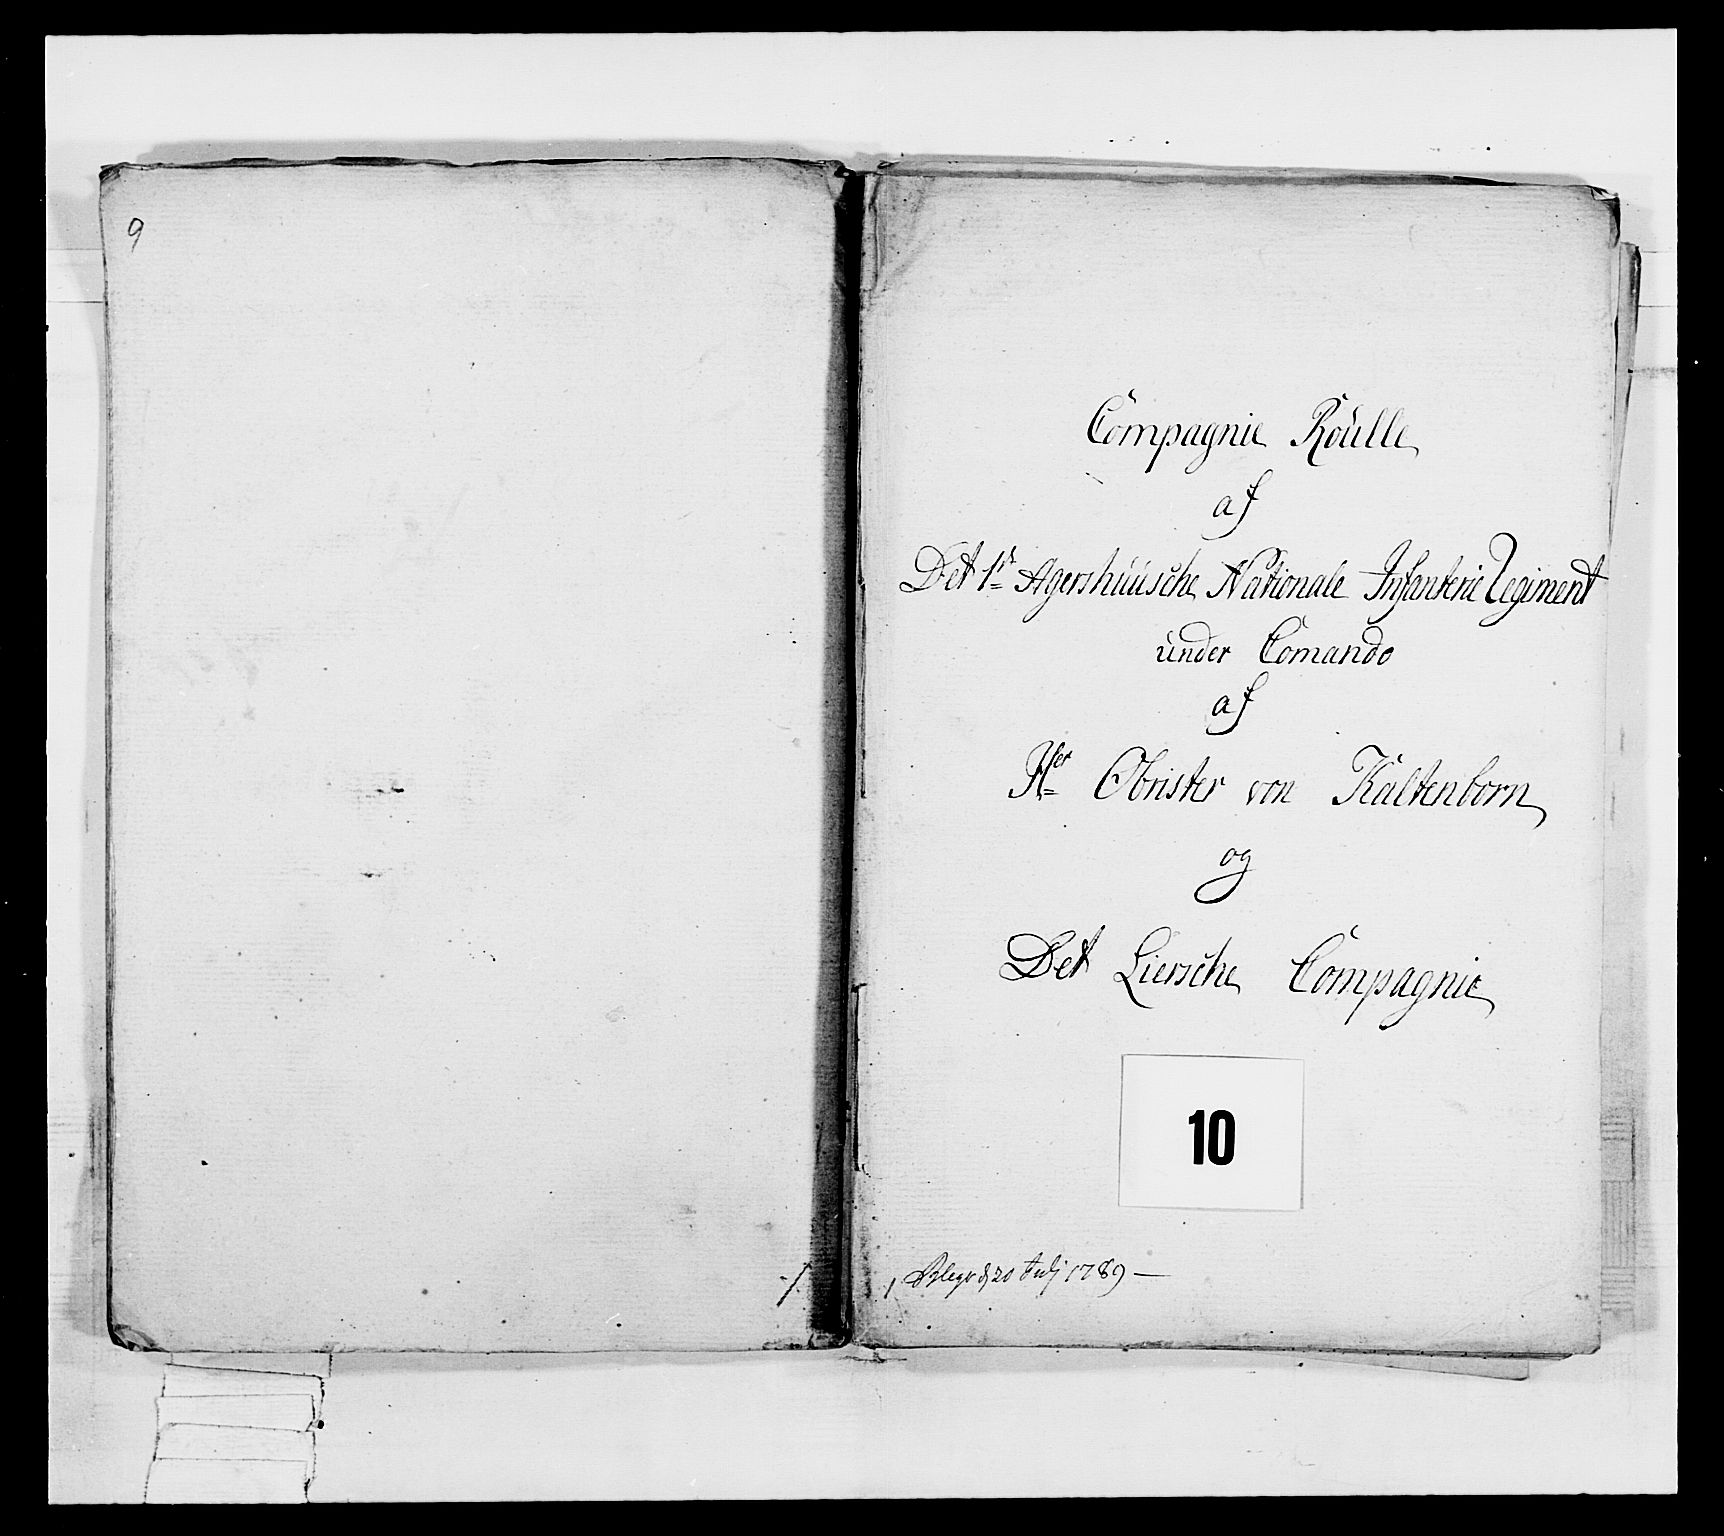 9
Compagnie Roülle
af
Det 1ste Agershüüsche Nationale Infanterie Regiment
ünder Comando
af
Her Obrister von Kaltenborn
og
Det Liersche Compagnie
10
20 Julj 1789